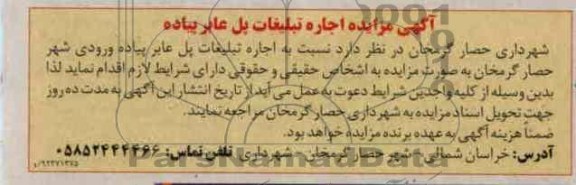 آگهی مزایده اجاره تبلیغات پل عابر پیاده
شهرداری حصار گرمخان در نظر دارد نسبت به اجاره تبلیغات پل عابر پیاده ورودی شهر
حصار گرمخان به صورت مزایده به اشخاص حقیقی و حقوقی دارای شرایط لازم اقدام نماید لذا
بدین وسیله از کلیه واجدین شرایط دعوت به عمل می آید از تاریخ انتشار این آگهی به مدت ده روز
جهت تحویل اسناد مزایده به شهرداری حصار گرمخان مراجعه نمایند.
ضمنا هزینه آگهی به عهده برنده مزایده خواهد بود.
آدرس: خراسان شمالی - شهر حصار گرمخان - شهرداری تلفن تماس: ۰۵۸۵۲۴۴۴۴۶۶
ParsNamadData